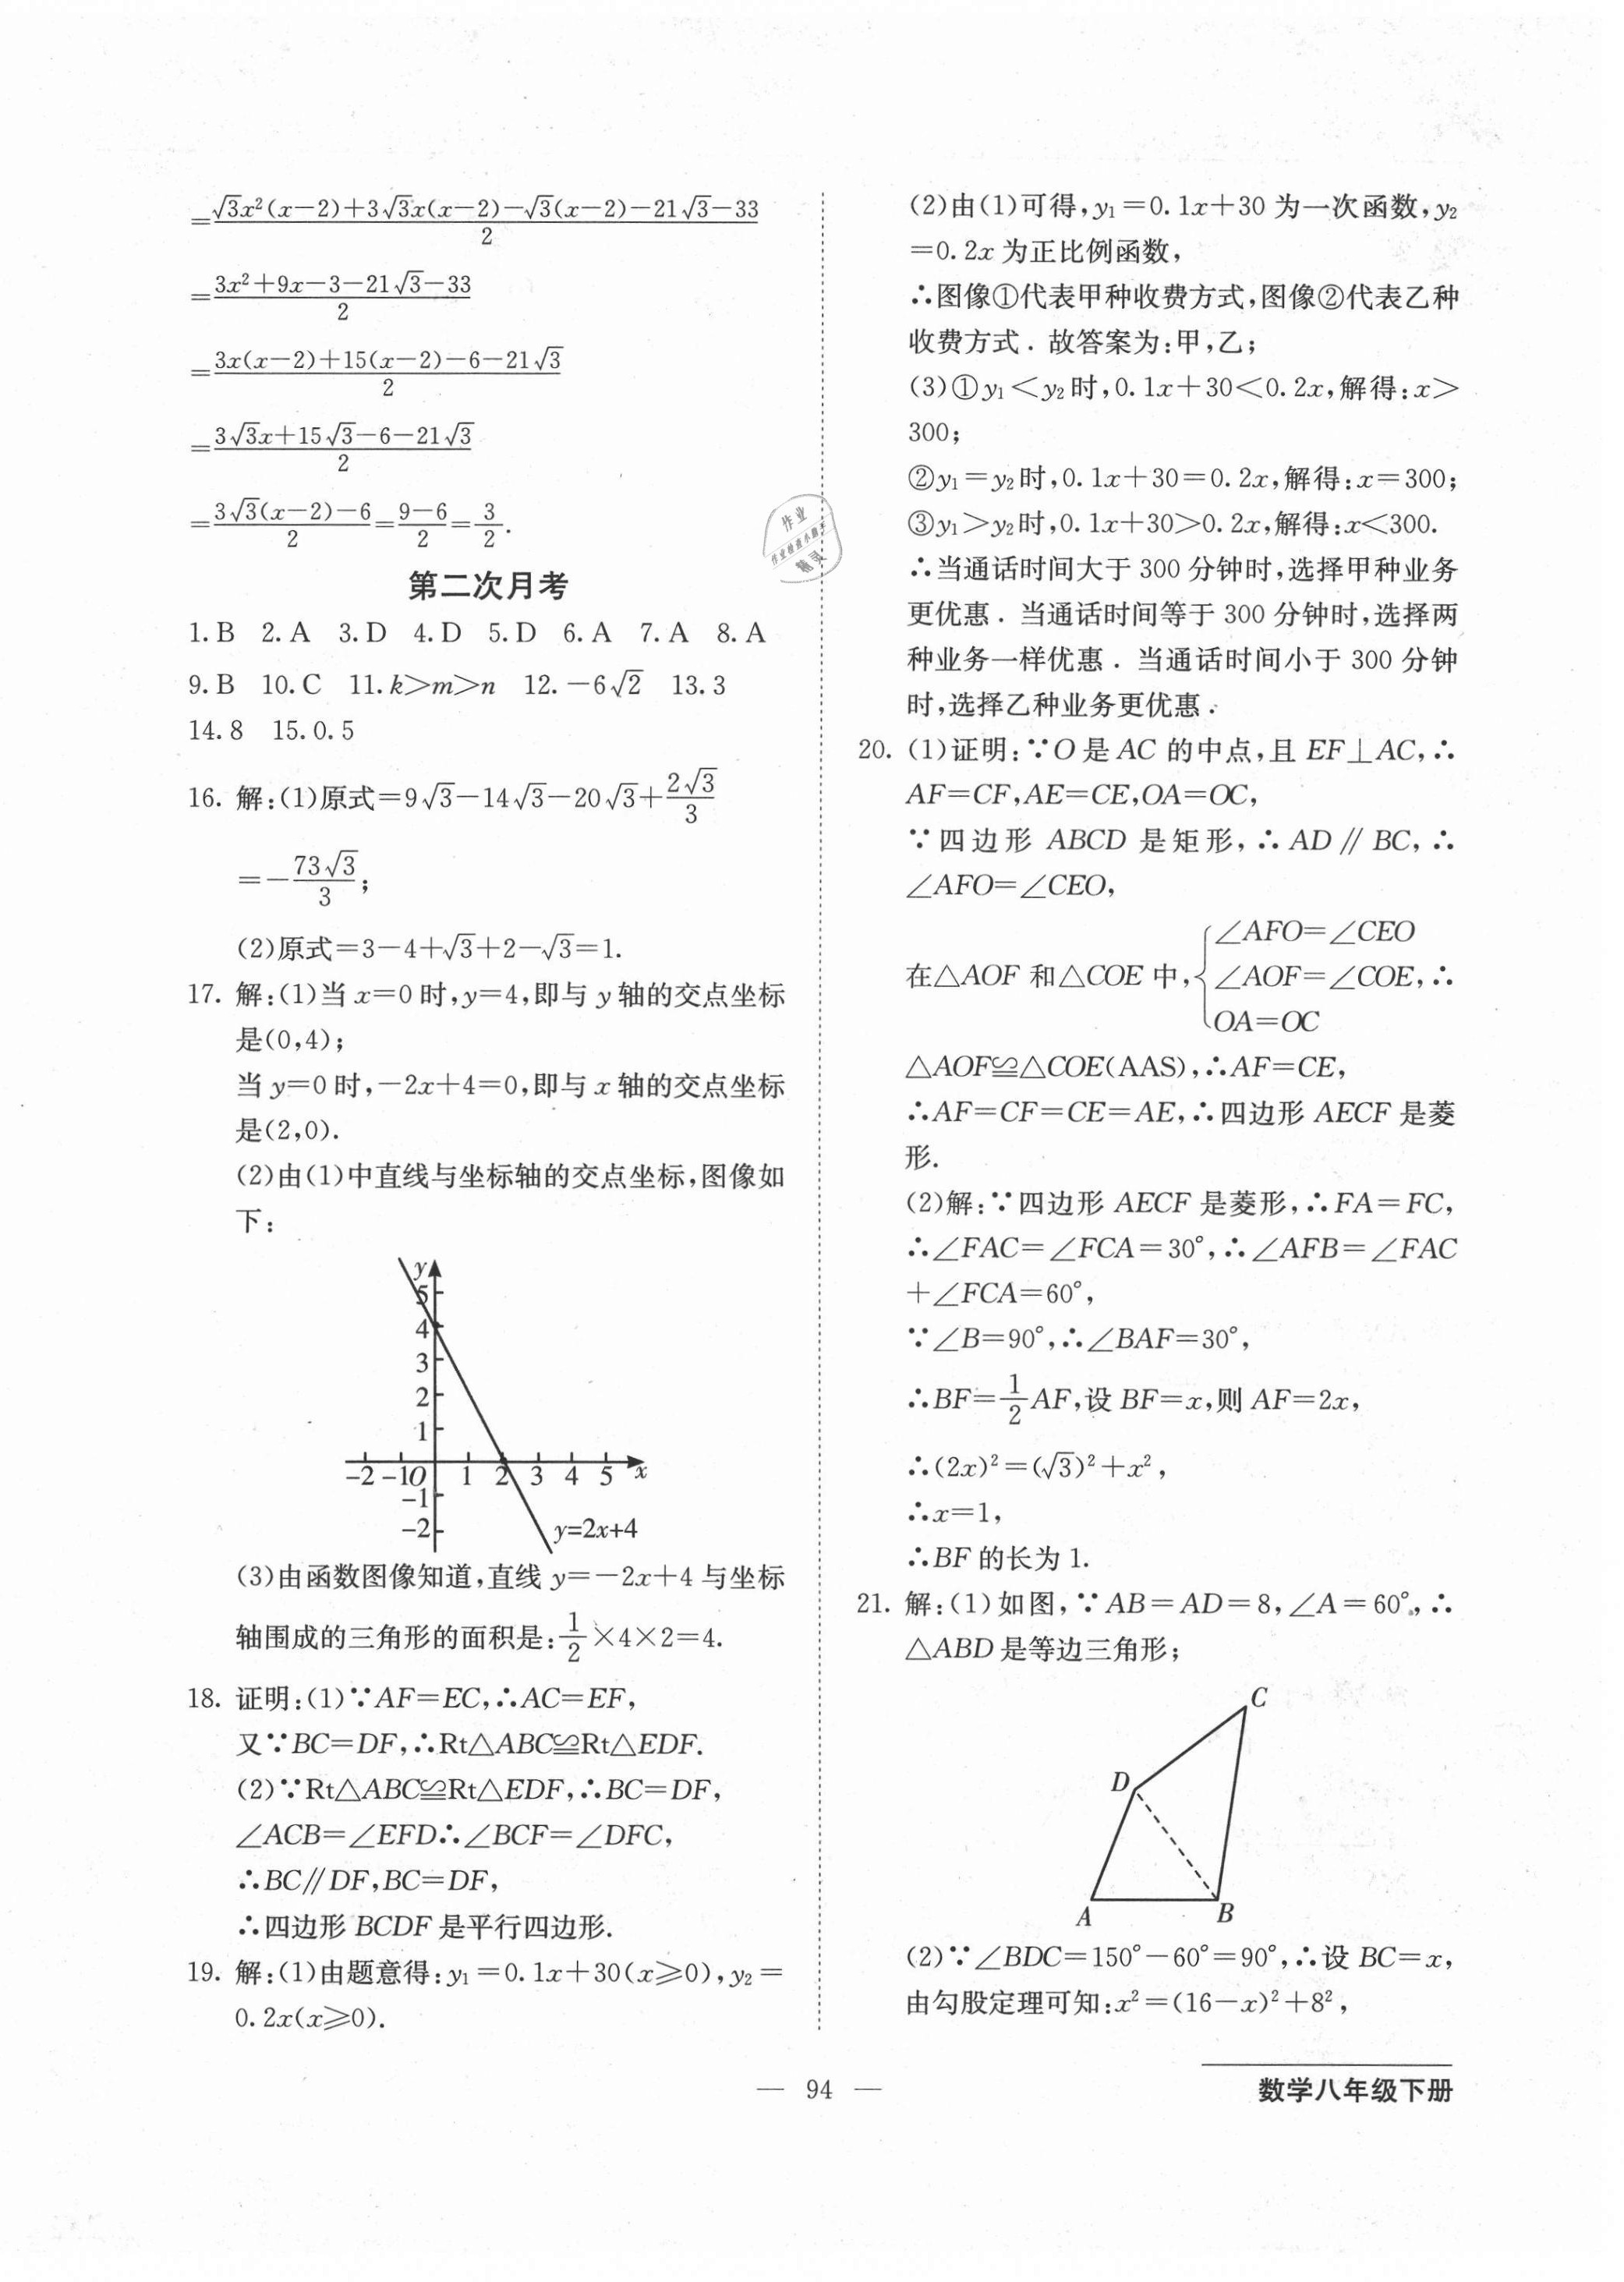 =(√3x²(x−2)+3√3x(x−2)−√3(x−2)−21√3−33)/2
=(3x²+9x−3−21√3−33)/2
=(3x(x−2)+15(x−2)−6−21√3)/2
=(3√3x+15√3−6−21√3)/2
=(3√3(x−2)−6)/2=(9−6)/2=3/2.
第二次月考
1.B 2.A 3.D 4.D 5.D 6.A 7.A 8.A
9.B 10.C 11.k>m>n 12.−6√2 13.3
14.8 15.0.5
16. 解:(1)原式=9√3−14√3−20√3+2√3/3
=−73√3/3;
(2)原式=3−4+√3+2−√3=1.
17. 解:(1)当x=0时,y=4,即与y轴的交点坐标
是(0,4);
当y=0时,−2x+4=0,即与x轴的交点坐标
是(2,0).
(2)由(1)中直线与坐标轴的交点坐标,图像如
下:
y
5
4
3
2
1
−2 −1O 1 2 3 4 5 x
−1
−2
y=2x+4
(3)由函数图像知道,直线y=−2x+4与坐标
轴围成的三角形的面积是:1/2×4×2=4.
18. 证明:(1)∵AF=EC,∴AC=EF,
又∵BC=DF,∴Rt△ABC≌Rt△EDF.
(2)∵Rt△ABC≌Rt△EDF,∴BC=DF,
∠ACB=∠EFD∴∠BCF=∠DFC,
∴BC∥DF,BC=DF,
∴四边形BCDF是平行四边形.
19. 解:(1)由题意得:y₁=0.1x+30(x⩾0),y₂=
0.2x(x⩾0).
(2)由(1)可得,y₁=0.1x+30为一次函数,y₂
=0.2x为正比例函数,
∴图像①代表甲种收费方式,图像②代表乙种
收费方式.故答案为:甲,乙;
(3)①y₁<y₂时,0.1x+30<0.2x,解得:x>
300;
②y₁=y₂时,0.1x+30=0.2x,解得:x=300;
③y₁>y₂时,0.1x+30>0.2x,解得:x<300.
∴当通话时间大于300分钟时,选择甲种业务
更优惠.当通话时间等于300分钟时,选择两
种业务一样优惠.当通话时间小于300分钟
时,选择乙种业务更优惠.
20. (1)证明:∵O是AC的中点,且EF⊥AC,∴
AF=CF,AE=CE,OA=OC,
∵四边形ABCD是矩形,∴AD∥BC,∴
∠AFO=∠CEO,
∠AFO=∠CEO
在△AOF和△COE中,{∠AOF=∠COE,∴
OA=OC
△AOF≌△COE(AAS),∴AF=CE,
∴AF=CF=CE=AE,∴四边形AECF是菱
形.
(2)解:∵四边形AECF是菱形,∴FA=FC,
∴∠FAC=∠FCA=30°,∴∠AFB=∠FAC
+∠FCA=60°,
∵∠B=90°,∴∠BAF=30°,
∴BF=1/2AF,设BF=x,则AF=2x,
∴(2x)²=(√3)²+x²,
∴x=1,
∴BF的长为1.
21. 解:(1)如图,∵AB=AD=8,∠A=60°,∴
△ABD是等边三角形;
C
D
A B
(2)∵∠BDC=150°−60°=90°,∴设BC=x,
由勾股定理可知:x²=(16−x)²+8²,
— 94 —
数学八年级下册